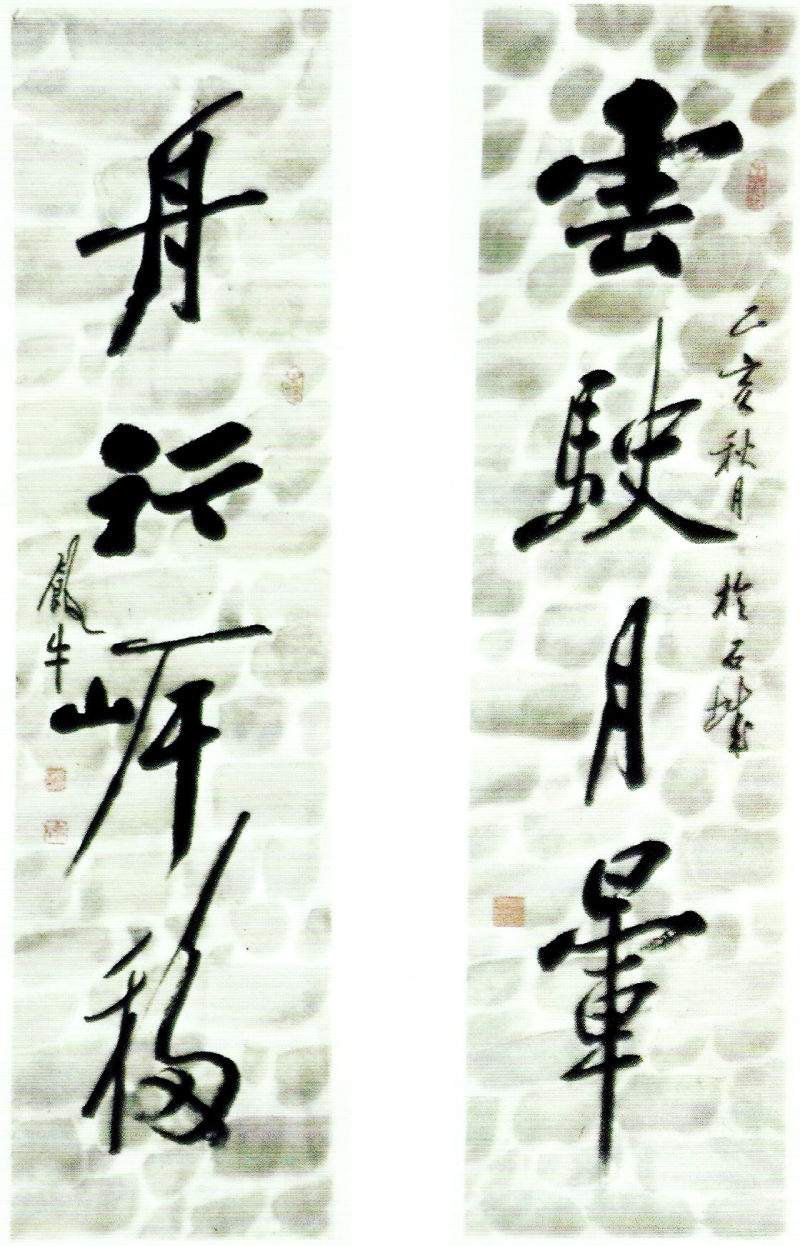 雲駛月暈
亥秋月 於石城
舟行岸移
牛